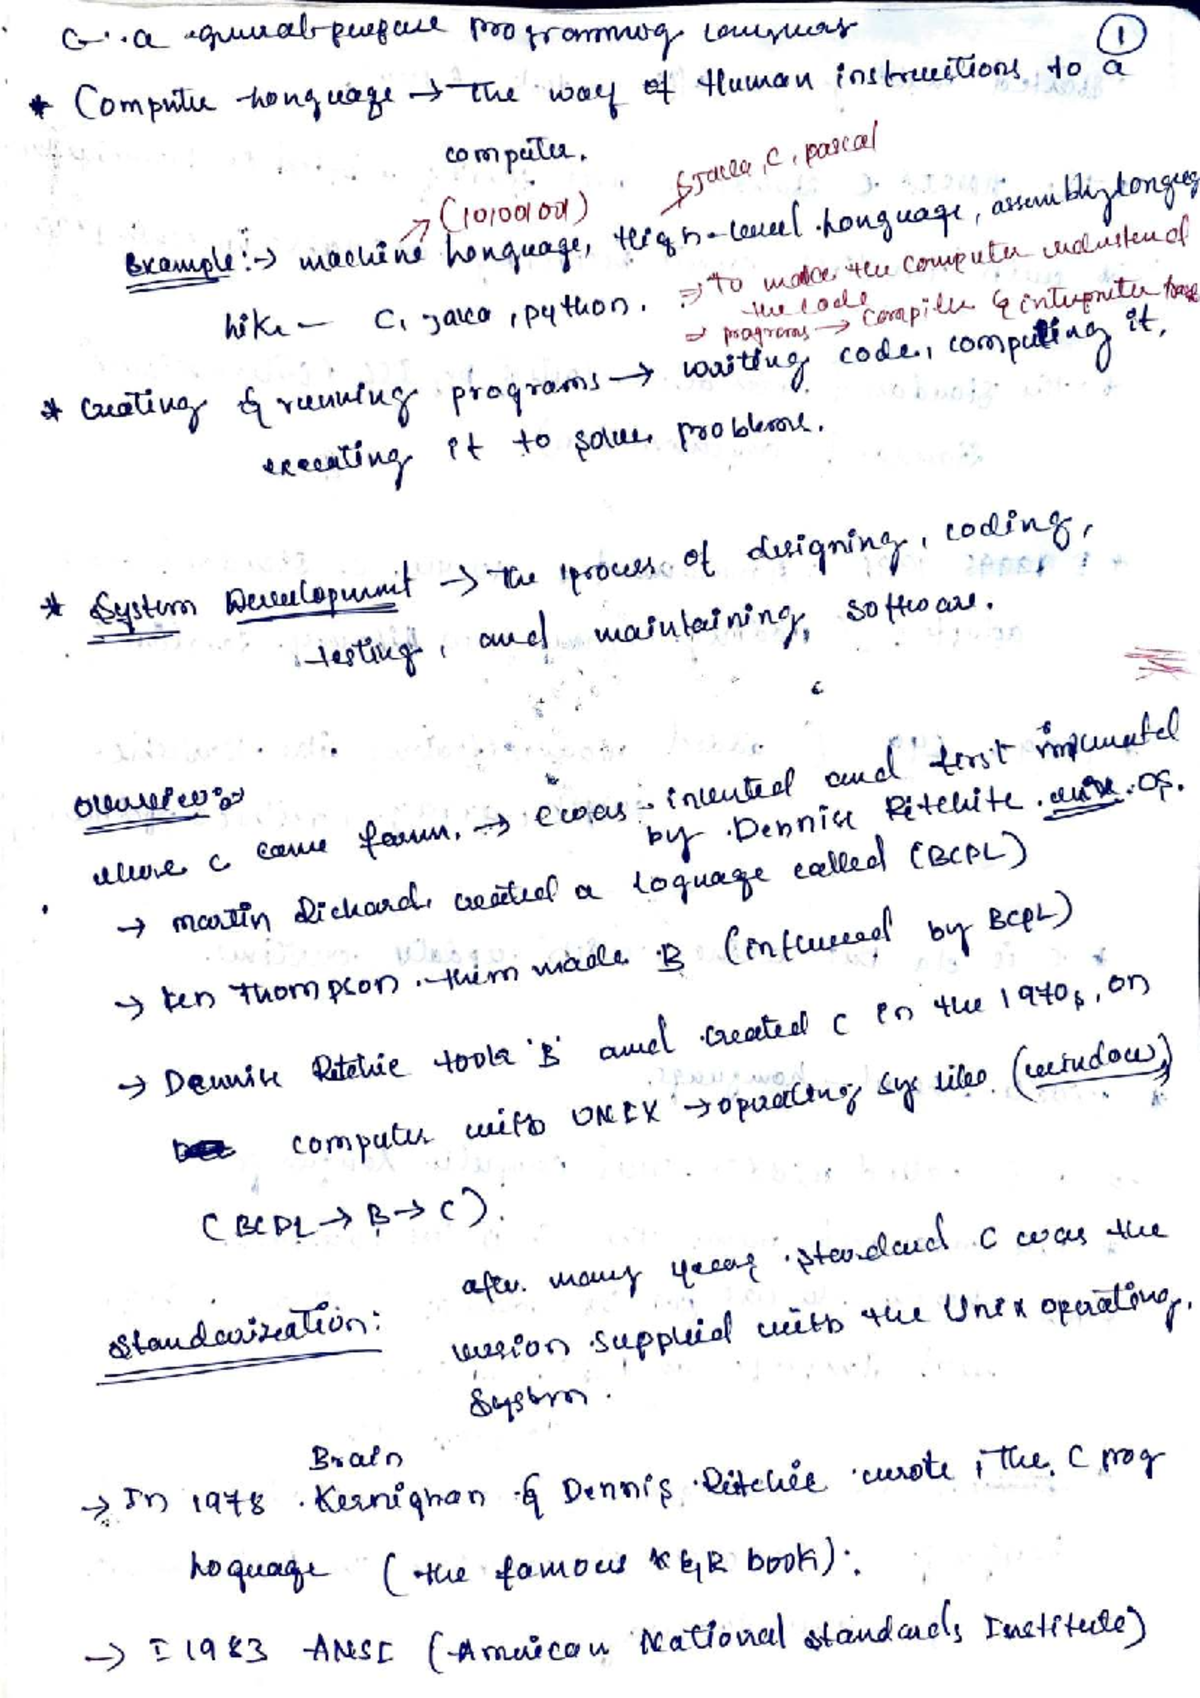 C. a general-purpose programming language
1
* Computer Language → The way of Human instructions to a
computer.
→ (10100100) → Java, C, pascal
Example:→ machine Language, High-level Language, assembly language
like — C, Java, python. → To make the computer understand
the code
→ programs → Compiler & interpreter
* Creating & running programs → writing code, computing it,
executing it to solve problems.
* System Development → The process of designing, coding,
testing, and maintaining software.
Overview:→
where C came from. → C was invented and first
by Dennise Ritchite.
→ Martin Richard, created a loguage called (BCPL)
→ Ken Thompson them made B (influeced by BCPL)
→ Dennise Ritchie took 'B' and created C in the 1970s, on
computer with UNIX → operating sys like (window)
(BCPL → B → C).
Standarization: after many years standard C was the
version supplied with the Unix operating
System.
Brain
→ In 1978 Kernighan & Dennis Ritchie wrote The C prog
loguage (the famous K&R book).
→ I 1983 ANSI (American National Standards Institute)